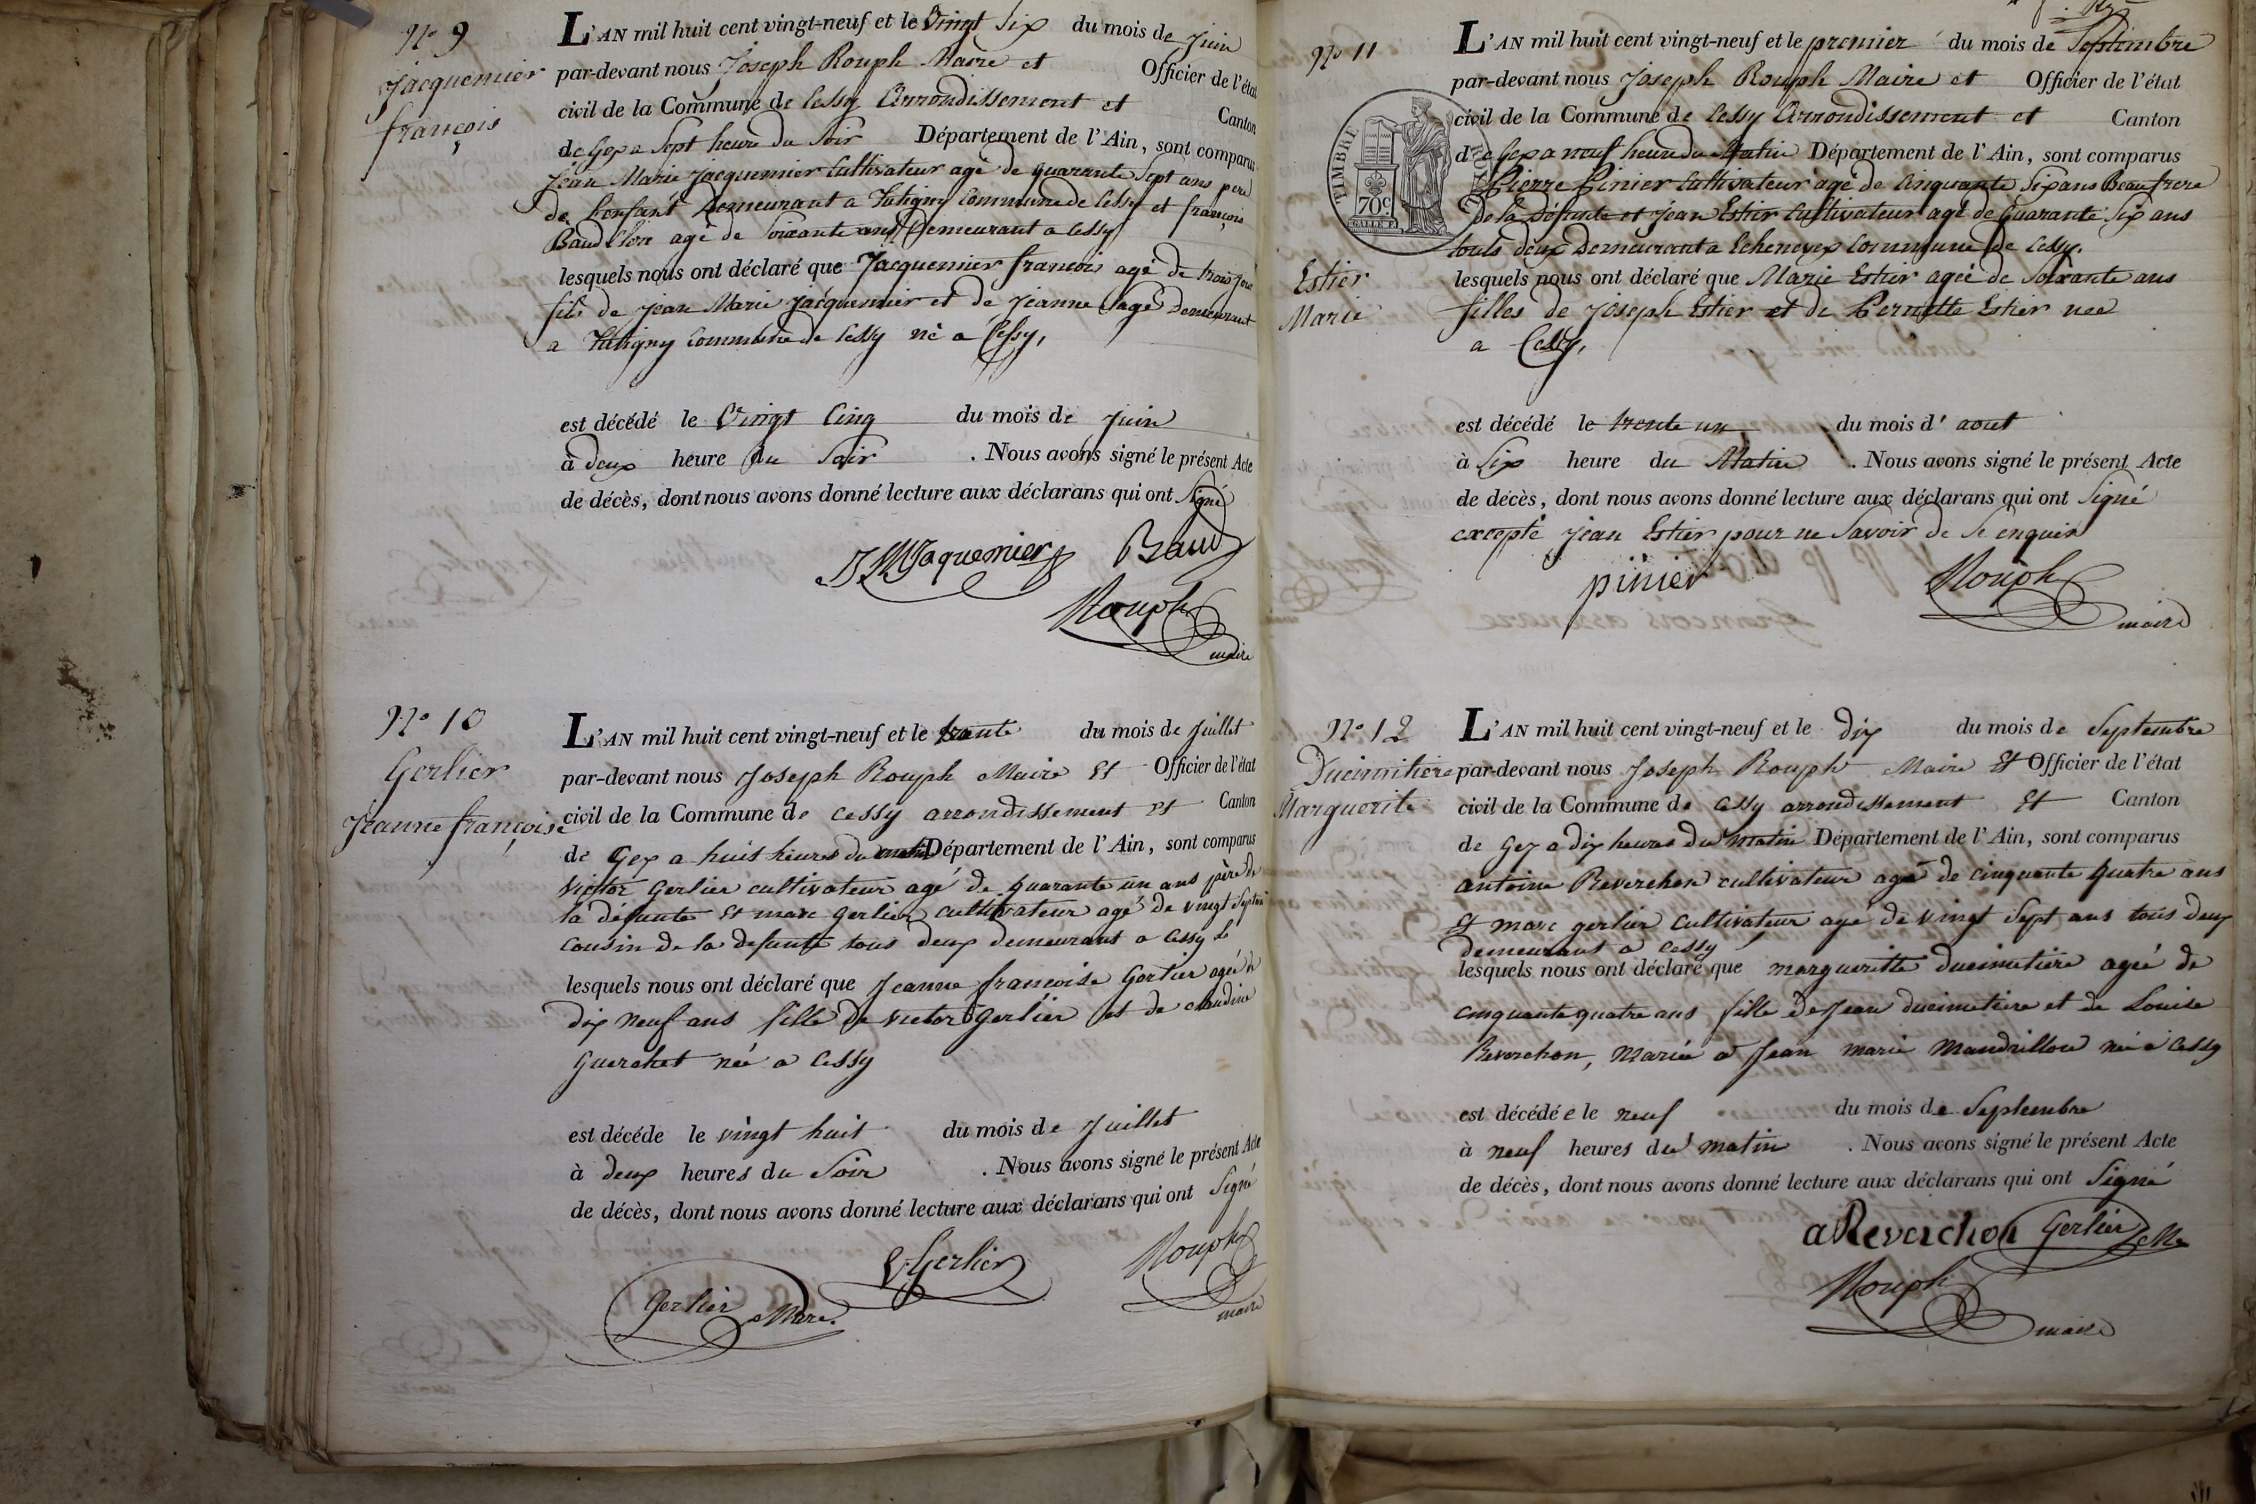 N° 9
Jacquemier
françois
L'AN mil huit cent vingt-neuf et le vingt Six du mois de Juin
par-devant nous Joseph Rouph Maire et Officier de l'état
civil de la Commune de Cessy Arrondissement et Canton
de Gex a Sept heure du Soir Département de l'Ain, sont comparus
Jean Marie Jacquemier Cultivateur agé de quarante Sept ans pere
de L'enfant Demeurant a Tutigny Commune de Cessy et françois
agé de Soixante ans Demeurant a Cessy
lesquels nous ont déclaré que Jacquemier francois agé de trois jour
fils de Jean Marie Jacquemier et de Jeanne Sage Demeurant
a Tutigny Commune de Cessy né a Cessy,
est décédé le Vingt Cinq du mois de Juin
à deux heure du Soir . Nous avons signé le présent Acte
de décès, dont nous avons donné lecture aux déclarans qui ont Signé
JM Jaquemier Baud
Rouph
maire
N° 10
Gerlier
Jeanne françoise
L'AN mil huit cent vingt-neuf et le trante du mois de Juillet
par-devant nous Joseph Rouph Maire Et Officier de l'état
civil de la Commune de Cessy arrondissement et Canton
de Gex a huit heures du matin Département de l'Ain, sont comparus
Victor Gerlier cultivateur agé de quarante un ans père de
la défunte Et marc Gerlier cultivateur agé de vingt Sept ans
Cousin de la defunte tous deux demeurant a Cessy
lesquels nous ont déclaré que Jeanne francoise Gerlier agée de
dix neuf ans fille de victor Gerlier et de claudine
Guerchet née a Cessy
est décéde le vingt huit du mois de Juillet
à deux heures du Soir . Nous avons signé le présent Acte
de décès, dont nous avons donné lecture aux déclarans qui ont Signé
VGerlier Rouph
Gerlier Marc. maire
N° 11
Estier
Marie
TIMBRE ROYAL
70c
L'AN mil huit cent vingt-neuf et le premier du mois de Septimbre
par-devant nous Joseph Rouph Maire et Officier de l'état
civil de la Commune de Cessy Arrondissement et Canton
de Gex a neuf heure du Matin Département de l'Ain, sont comparus
Pierre Pinier Cultivateur agé de Cinquante Six ans Beaufrere
De la Défunte et Jean Estier Cultivateur agé de Quarante Six ans
touts deux Demeurant a Echenevex Commune de Cessy.
lesquels nous ont déclaré que Marie Estier agée de Soixante ans
filles de Joseph Estier et de Pernette Estier née
a Cessy,
est décédé le trente un du mois d' aout
à Six heure du Matin . Nous avons signé le présent Acte
de décès, dont nous avons donné lecture aux déclarans qui ont Signé
excepté Jean Estier pour ne Savoir de Ce enquir
pinier Rouph
maire
N° 12
Ducimitiere
Marguerite
L'AN mil huit cent vingt-neuf et le dix du mois de Septembre
par-devant nous Joseph Rouph Maire Et Officier de l'état
civil de la Commune de Cessy arrondissement Et Canton
de Gex a dix heures du matin Département de l'Ain, sont comparus
antoine Reverchon cultivateur agé de cinquante quatre ans
Et marc gerlier Cultivateur age de vingt Sept ans tous deux
demeurant a Cessy
lesquels nous ont déclaré que margueritte ducimetiere ageé de
cinquante quatre ans fille de Jean ducimetiere et de Louise
Reverchon, Mariée a Jean marie Mandrillon née a Cessy
est décédé e le neuf du mois de Septembre
à neuf heures du matin . Nous avons signé le présent Acte
de décès, dont nous avons donné lecture aux déclarans qui ont Signé
aReverchon Gerlier Mc
Rouph
maire